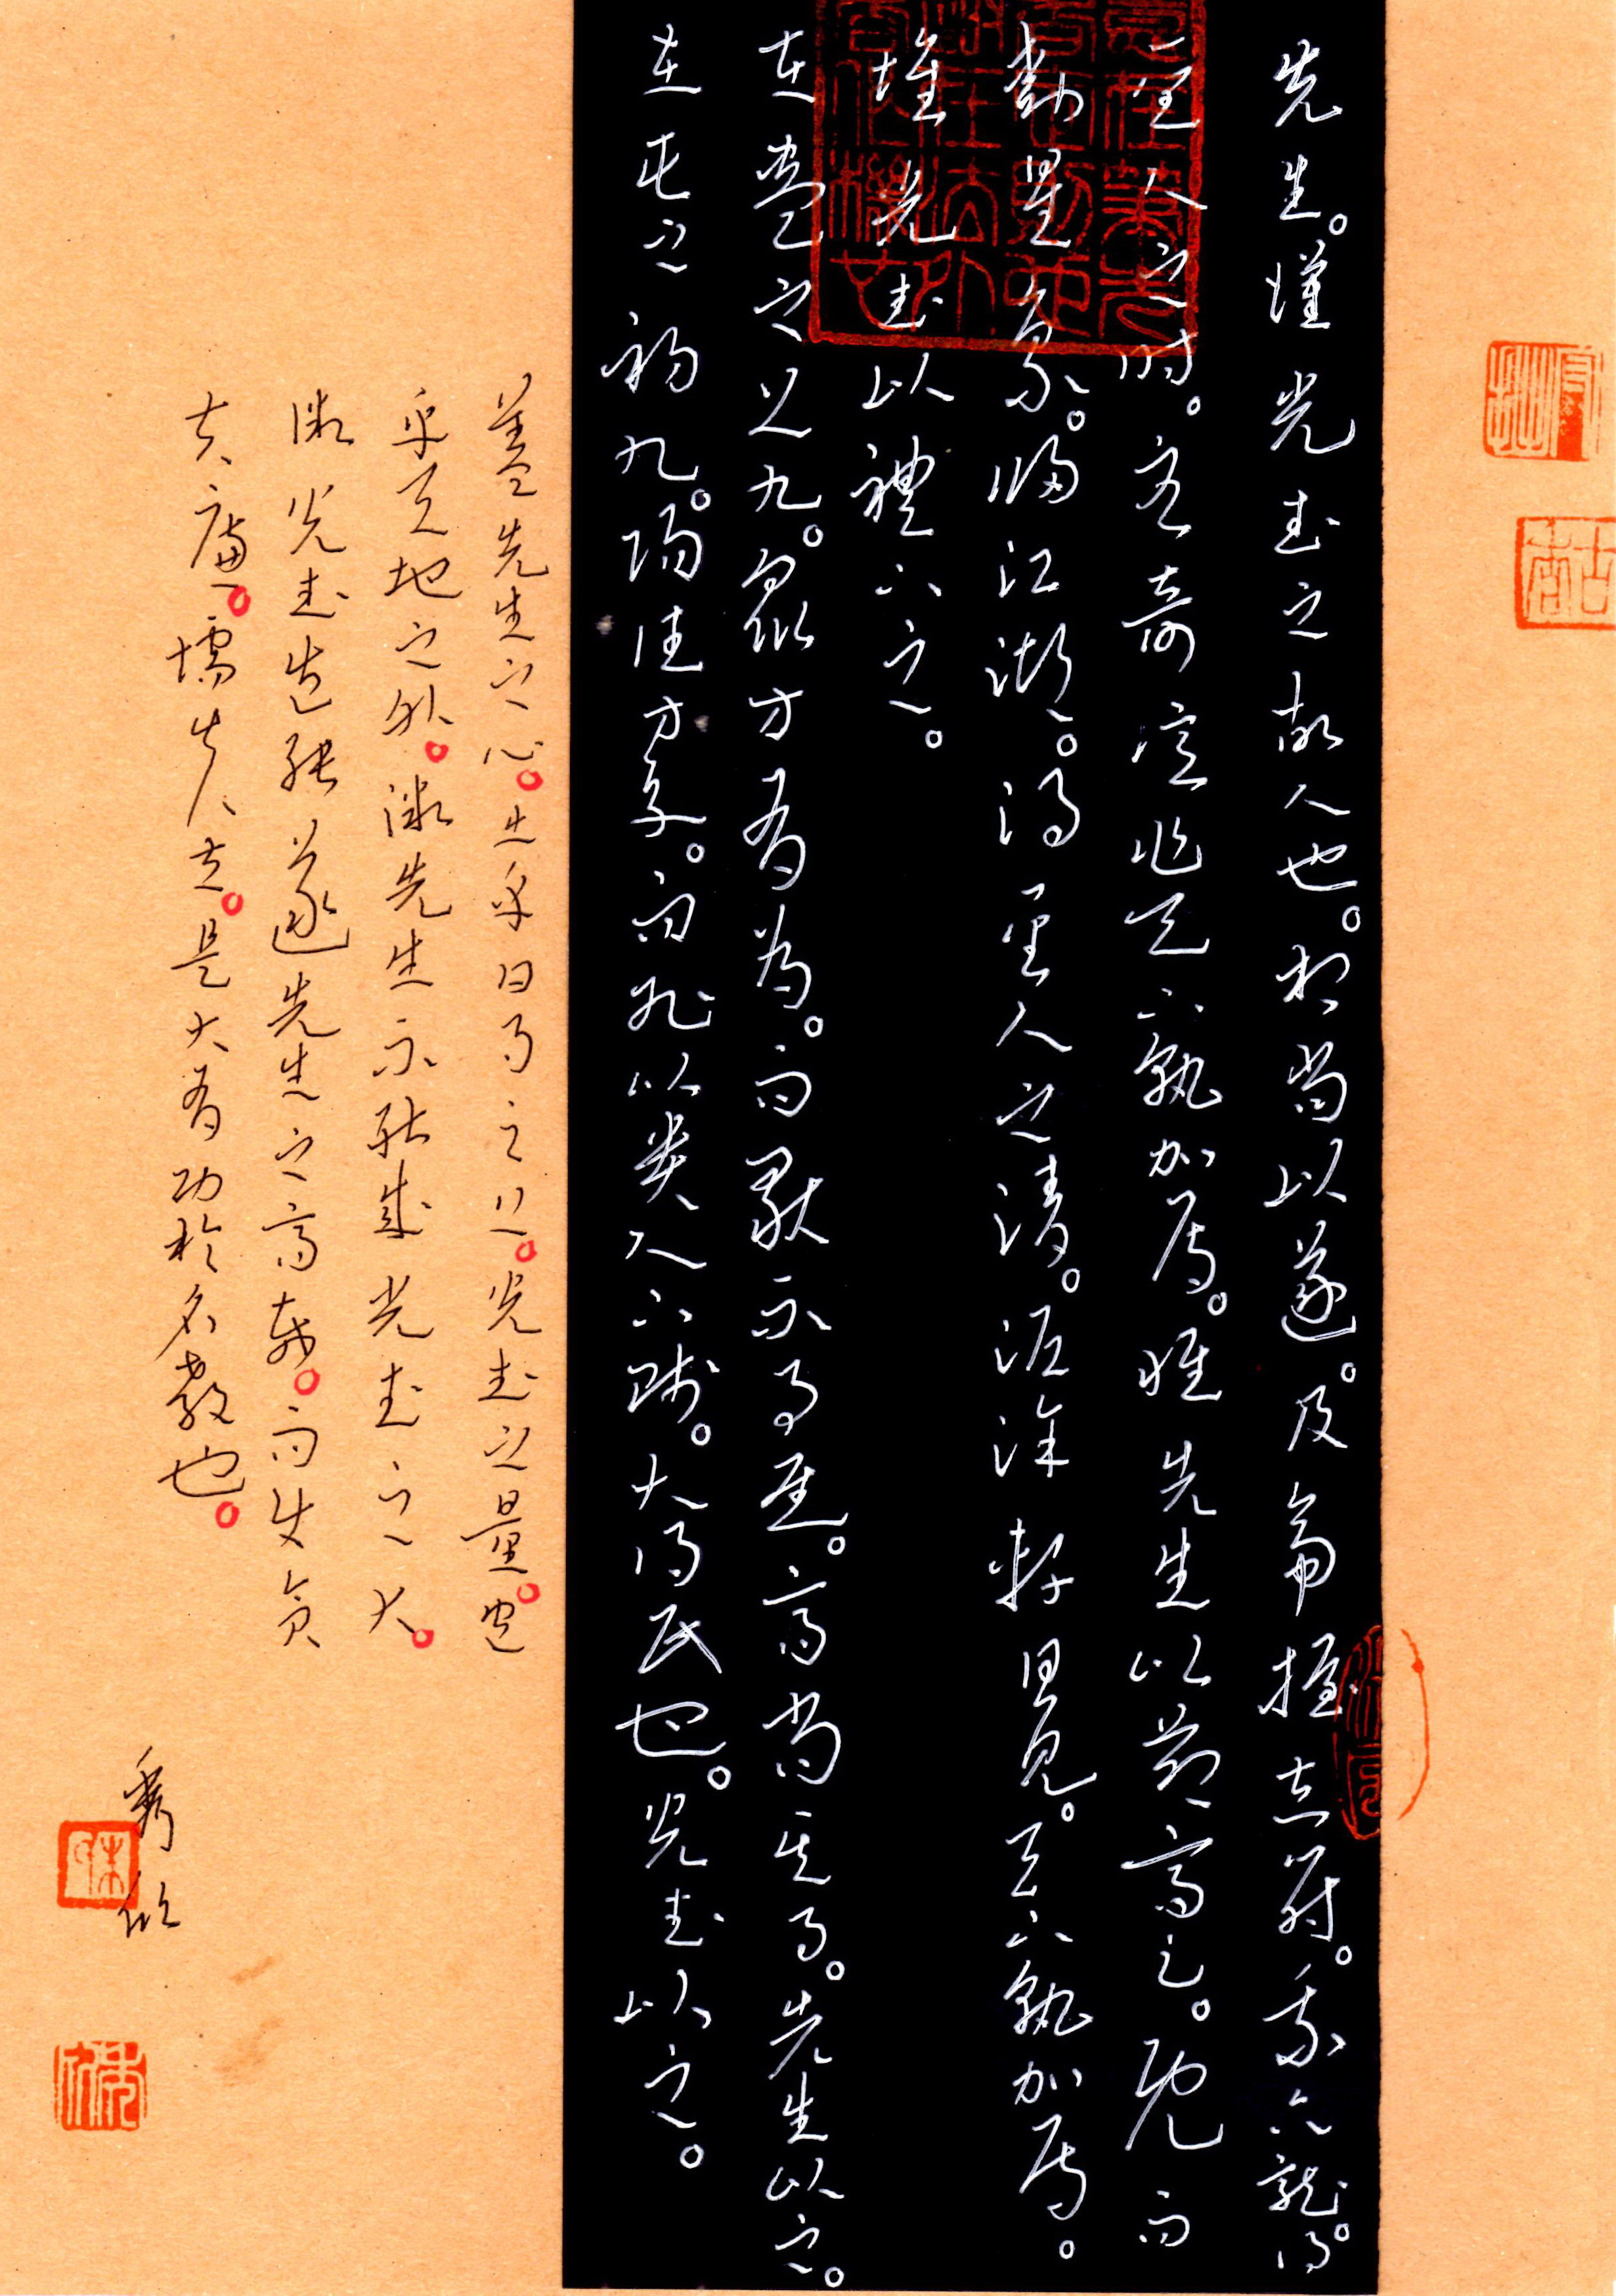 先生。漢光武之故人也。相尚以遂。及帝握赤符。乘六龍。得
聖人之時。臣妾億兆天下孰加焉。惟先生以節高之。既而
動星象。歸江湖。得聖人之清。泥塗軒冕。天下孰加焉。
惟光武以禮下之。
在蠱之上九。眾方有為。而獨不事王侯。高尚其事。先生以之。
在屯之初九。陽德方亨。而能以貴下賤。大得民也。光武以之。
蓋先生之心。出乎日月之上。光武之量。包
乎天地之外。微先生不能成光武之大。
微光武豈能遂先生之高哉。而使貪
夫廉。懦夫立。是大有功於名教也。